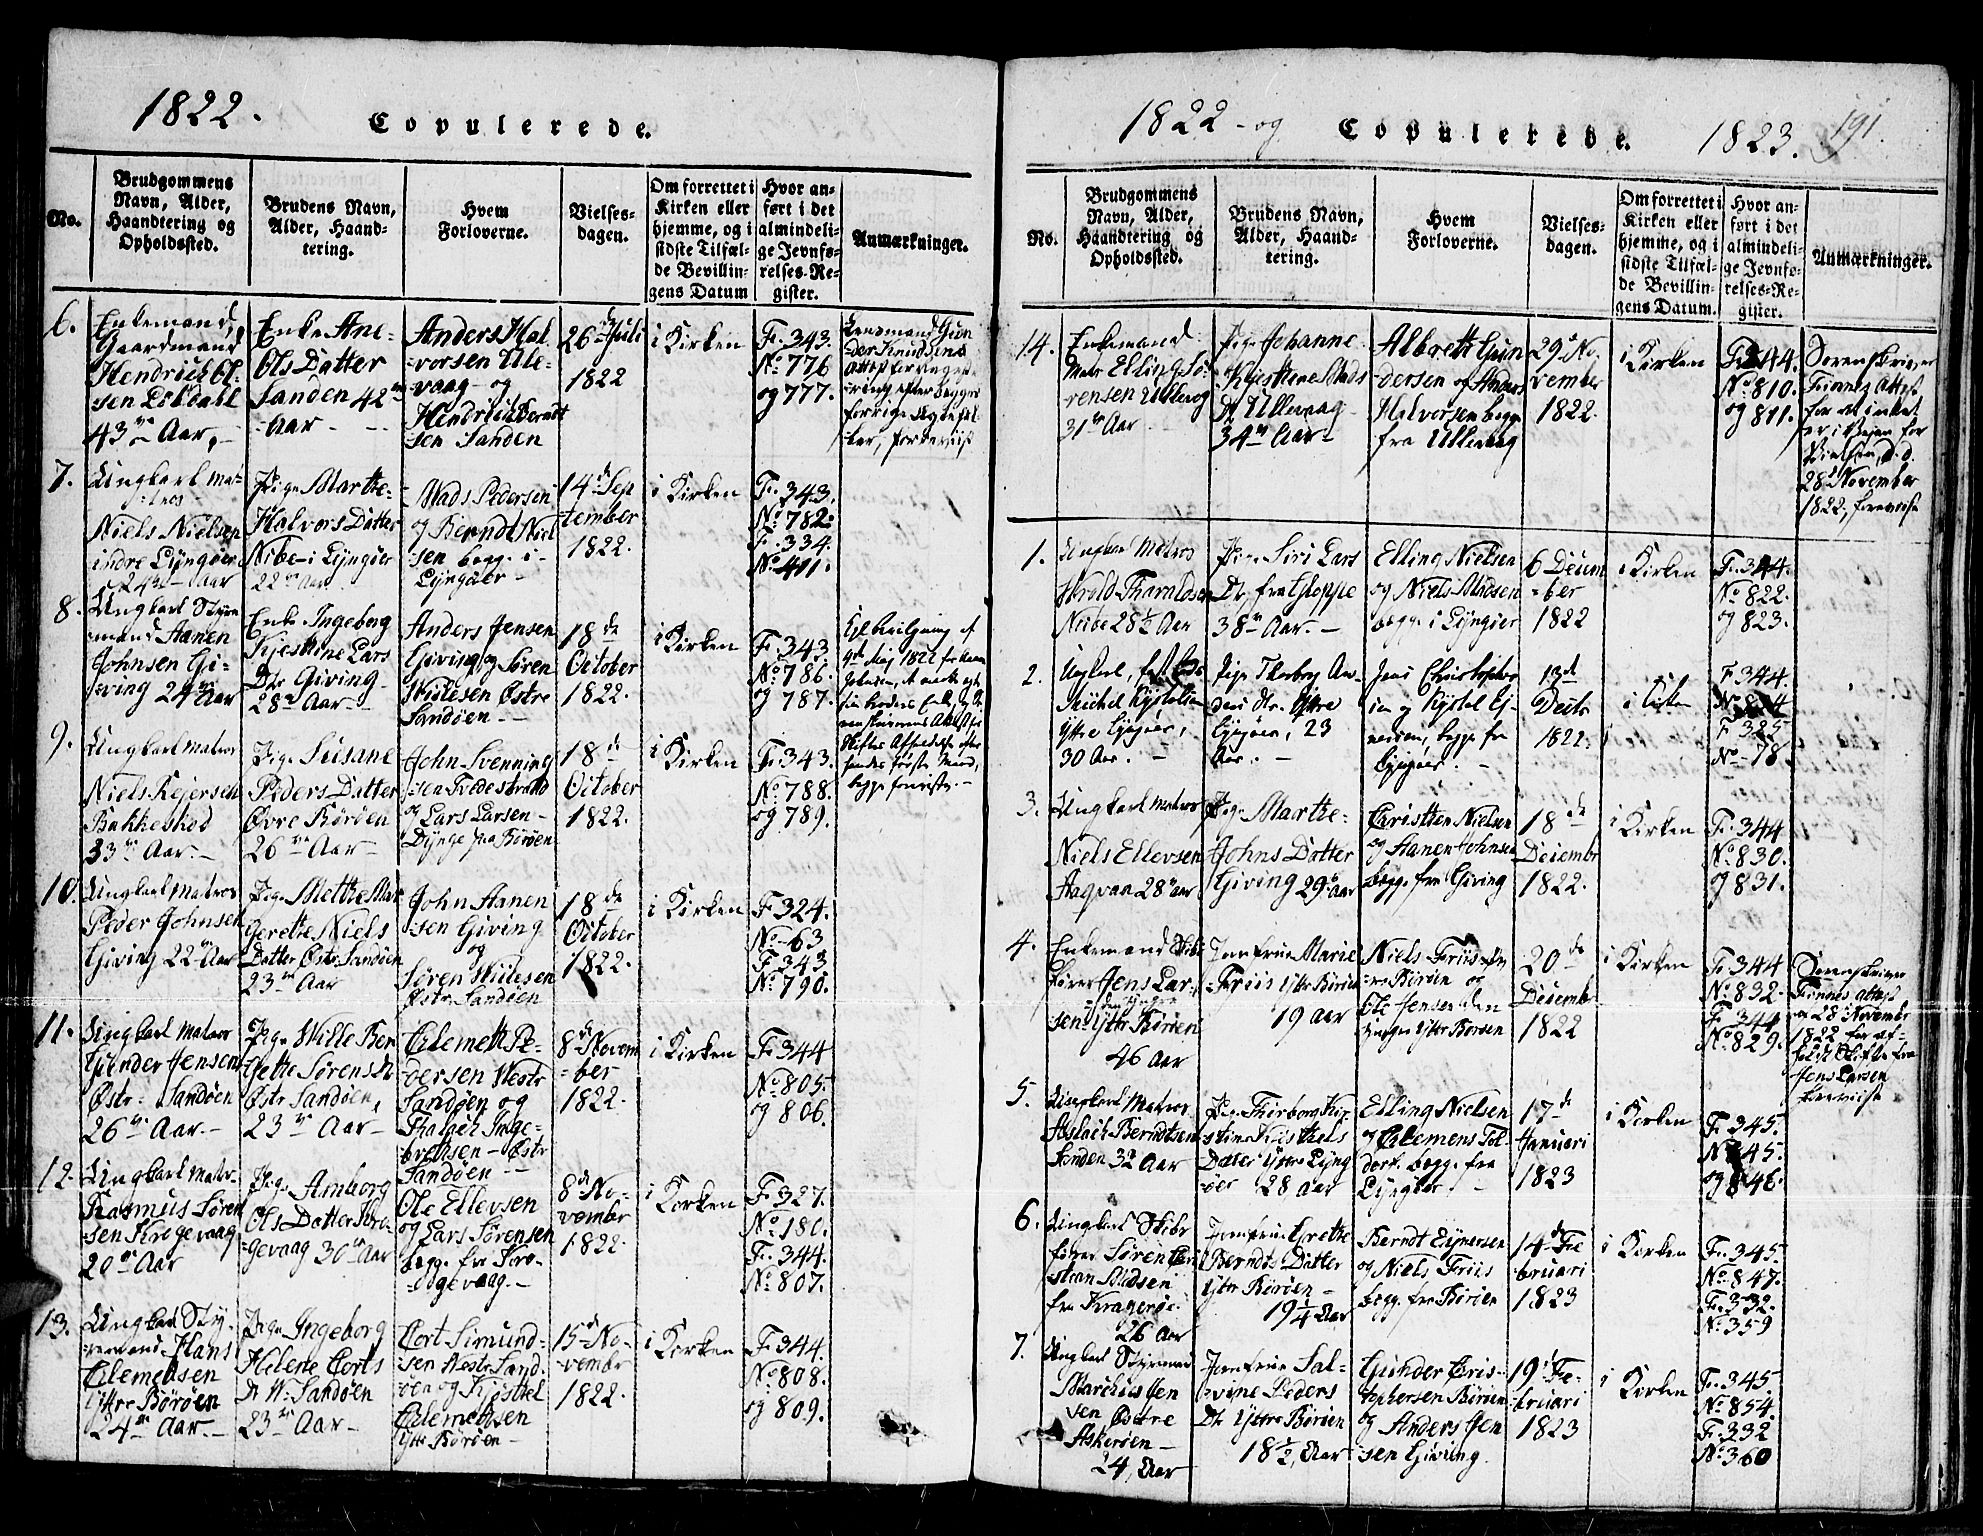 1822.
Copulerede.
No.
Brudgommens
Navn, Alder,
Haandtering og
Opholdssted.
Brudens Navn,
Alder, Haand-
tering.
Hvem
Forloverne.
Vielses-
dagen.
Om forrettet i
Kirken eller
hjemme, og i
sidste Tilfæl-
de Bevillin-
gens Datum
Hvor an-
ført i det
almindeli-
ge Jevnfø-
relses-Re-
gister.
Anmærkninger.
6.
Enkemand,
Gaardmand
Hendrich Ol-
sen Lökdahl
43 Aar,
Enke Ane
Ols Datter
Sanden 42
Aar
Anders Hal-
vorsen Ule-
vaag og
Hendrich Berndt
sen Sanden
26 Juli
1822
i Kirken
F. 343.
No 776
og 777.
Lensmand Gun
der Knudsens
7.
Ungkarl Mat-
tros
Niels Nielsen
indre Lyngöer
24 Aar
Pige Marthe
Halvors Datter
Nibe i Lyngöer
22 Aar
Mads Pedersen
og Berndt Niel
sen begge i
Lyngöer
14 Sep
tember
1822.
i Kirken
F. 343.
No 782.
F. 334.
No 411.
8.
Ungkarl Styr
mand Aanen
Johnsen Gi-
ving 24 Aar
Enke Ingeborg
Kjestine Lars
Dtr Giving
28 Aar
Anders Jensen
Giving og Sören
Nielesen Østre
Sandöen
18 de
October
1822.
i Kirken
F. 343
No 786.
og 787.
9 Maj 1822 for Aanen
begge foreviste.
9.
Ungkarl Matros
Niels Rejersen
Bakkeskod
33 Aar.
Pige Susane
Peders Datter
Øvre Börøen
26 Aar
John Svenning
sen Tvedestrand
og Lars Larsen
Dynge paa Börøen
18 de
October
1822.
i Kirken
F. 343.
No 788.
og 789.
10.
Ungkarl Matros
Peder Johnsen
Giving 22 Aar
Pige Methe Mar
Gerethe Niels
Datter Østr Sandöen
23 Aar
John Aanen
sen Giving
og
Sören Nielesen
Østr Sandöen
18 de
October
1822.
i Kirken
F. 324.
No 63
F. 343
No 790.
11.
Ungkarl Matros
Gunder Jensen
Østr. Sandöen
26 Aar.
Pige Wille Ber
gette Sörens D
Østr Sandöen,
23 Aar
Clemett Pe-
dersen Westr
Sandöen og
Thalach Inge-
brethsen Østr
Sandöen
8 Novem
ber
1822.
i Kirken
F. 344
No 805
og 806.
12.
Ungkarl Matr.
Rasmus Sören
sen Krogevaag
20 Aar
Pige Amborg
Ols Datter Kro-
gevaag 30 Aar
Ole Ellevsen
og Lars Sörensen
begge fra Kro-
gevaag.
8 No-
vembr
1822.
i Kirken
F. 327.
No 180.
F. 344.
No 807.
13.
Ungkarl Sty-
remand Hans
Clemetsen
Yttre Börøen
24 Aar.
Pige Ingeborg
Helene Corts
Dr W. Sandöen
23 Aar
Cort Simund-
sen Westr Sand-
öen og Kjøstel
Clemetsen
Yttr Börøen
15 No-
vembr
1822.
i Kirken
F. 344.
No 808.
og 809.
1822 og
Copulerede.
1823.
191.
No.
Brudgommens
Navn, Alder,
Haandtering og
Opholdssted.
Brudens Navn,
Alder, Haand-
tering.
Hvem
Forloverne.
Vielses-
dagen.
Om forrettet i
Kirken eller
hjemme, og i
sidste Tilfæl-
de Bevillin-
gens Datum.
Hvor an-
ført i det
almindeli-
ge Jevnfø-
relses-Re-
gister.
Anmærkninger.
14.
Enkemand
Matr Elling Sö-
rensen Ullevog
31 Aar
Pige Johanne
Kjesthene Mads
Dr Ullevaag
34 Aar
Albrett Gun
dersen og Anders
Halvorsen begge
fra Ullevaag
29 No
vember
1822.
i Kirken
F. 344.
No 810.
og 811.
Sorenskriver
Finnes Attest
for at intet
er i Vejen for
Vielsen, d.d.
28 November
1822, foreviist
1.
Ungkarl Matros
Harold Tharaldsen
Nibe 28½ Aar
Pige Siri Lars
Dtr fra Gloppe
38 Aar.
Elling Nielsen
og Niels Madsen
begge i Lyngöer
6 Decem
ber
1822
i Kirken
F. 344.
No 822.
og 823.
2.
Ungkarl,
Michel Kystelsen
Yttre Lyngöer,
30 Aar.
Pige Thorborg An-
ders Dr. Yttre
Lyngöer, 23
Aar.
Jens Christopher
sen og Kystel
begge fra
Lyngöer.
13 de
Decbr
1822.
i Kirken
F 344.
F 325
No 78.
3.
Ungkarl Matros
Niels Ellevsen
Aaqvaa 28 Aar
Pige Marthe
Johns Datter
Giving 29 Aar
Christen Nielsen
og Aanen Johnsen
begge fra Giving
18 de
December
1822.
i Kirken
F. 344
No 830.
og 831.
4.
Enkemand Skibs
fører Jens Lar-
sen Yttr Börøen
46 Aar
Jomfrue Marie
Friis Yttr Börøen
19 Aar
Niels Friis
Börøen og
Ole Jensen den
yngre Yttr Börøen
20 de
Decemb.
1822
i Kirken
F. 344
No 832.
F. 344
No 829.
Sorenskriver
Finnes Attest
28 Novembr
1822 for af-
holdt Skifte fra
Jens Larsen
foreviist
5.
Ungkarl Matros
Aslach Berndtsen
Sanden 32 Aar
Pige Thorborg Kir
stine Kisthels
Datter Yttre Lyng
öer 28 Aar
Elling Nielsen
og Clemens Tol
dorf. begge fra
Lyngöer.
17 de
Januari
1823
i Kirken
F. 345.
No 845.
og 846.
6.
Ungkarl Skibs
fører Sören Chri
stian Madsen
fra Kragerøe.
26 Aar
Jomfrue Grethe
Berndts Datter
Yttr Börøen
19¼ Aar
Berndt Eynersen
og Niels Friis
begge fra Börøen
14 Fe
bruari
1823
i Kirken
F. 345.
No 847.
F. 332.
No 359
7.
Ungkarl Styrmand
Marchus Jen
sen Østre
Askerøen
24, Aar
Jomfrue Sal-
vine Peders
Dtr Yttre Börøen
18½, Aar
Gunder Chris-
tophersen Börøen
og Anders Jen
sen Giving.
19 Fe-
bruari
1823
i Kirken
F. 345.
No 854.
F. 332
No 360